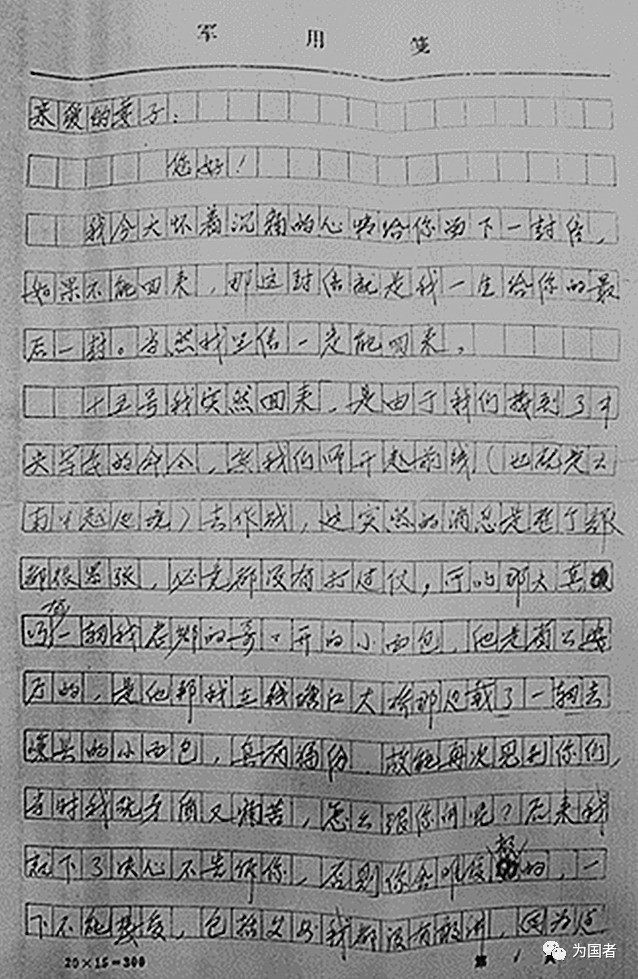 军用笺
亲爱的妻子:
您好!
我今天怀着沉痛的心情给你写下一封信,
如果不能回来,那这封信就是我一生给你的最
后一封。当然我坚信一定能回来。
十五号我突然回来,是由于我们接到了中
央军委的命令,我们师开赴前线(也就是云
南中越边境)去作战,这突然的消息是整个部队
都很紧张,必竟都没有打过仗,可那天真
巧一辆我老乡的哥哥开的小面包,他是
的,是他帮我在钱塘江大桥那边截了一辆去
嘉兴的小面包,真有福份,故能再次见到你们,
当时我既矛盾又痛苦,怎么跟你讲呢?后来我
就下了决心不告诉你,否则你会难受的,一
下不能接受,包括父母我都没有敢讲,因为这
20×15=300
第 1
为国者